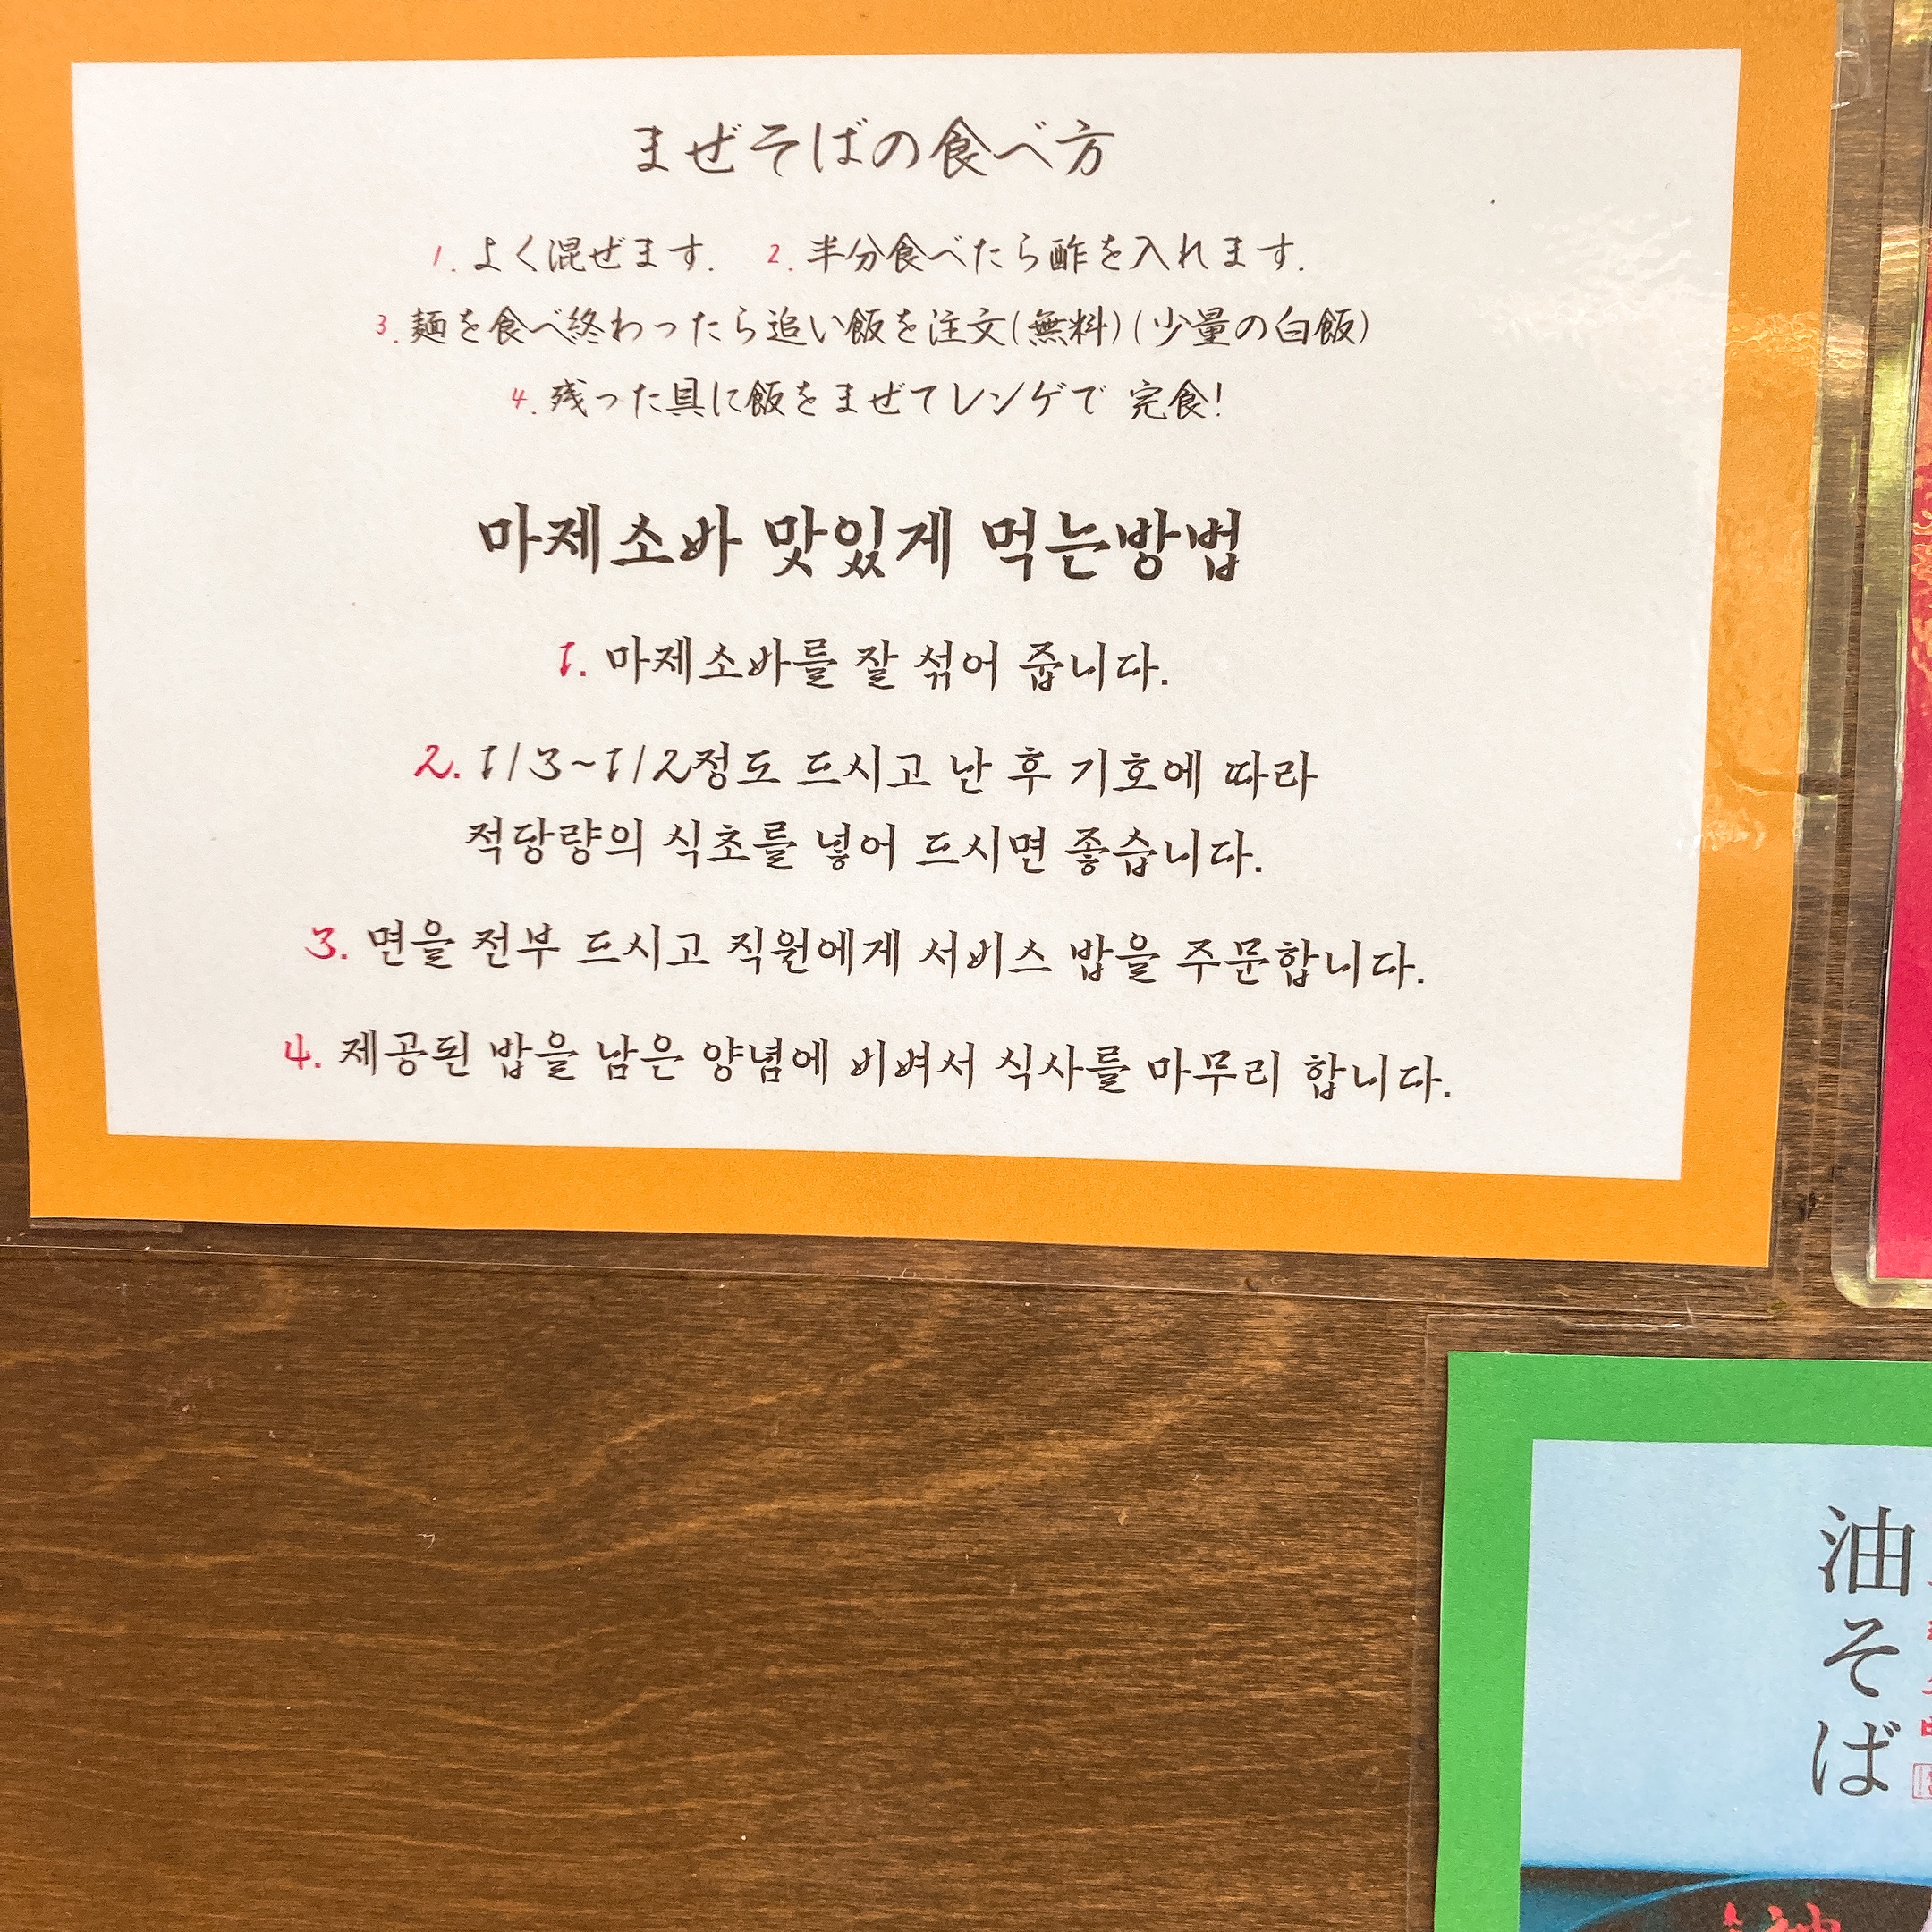 まぜそばの食べ方
1. よく混ぜます. 2. 半分食べたら酢を入れます.
3. 麺を食べ終わったら追い飯を注文(無料)(少量の白飯)
4. 残った具に飯をまぜてレンゲで 完食!
마제소바 맛있게 먹는방법
1. 마제소바를 잘 섞어 줍니다.
2. 1/3~1/2정도 드시고 난 후 기호에 따라
적당량의 식초를 넣어 드시면 좋습니다.
3. 면을 전부 드시고 직원에게 서비스 밥을 주문합니다.
4. 제공된 밥을 남은 양념에 비벼서 식사를 마무리 합니다.
油そば